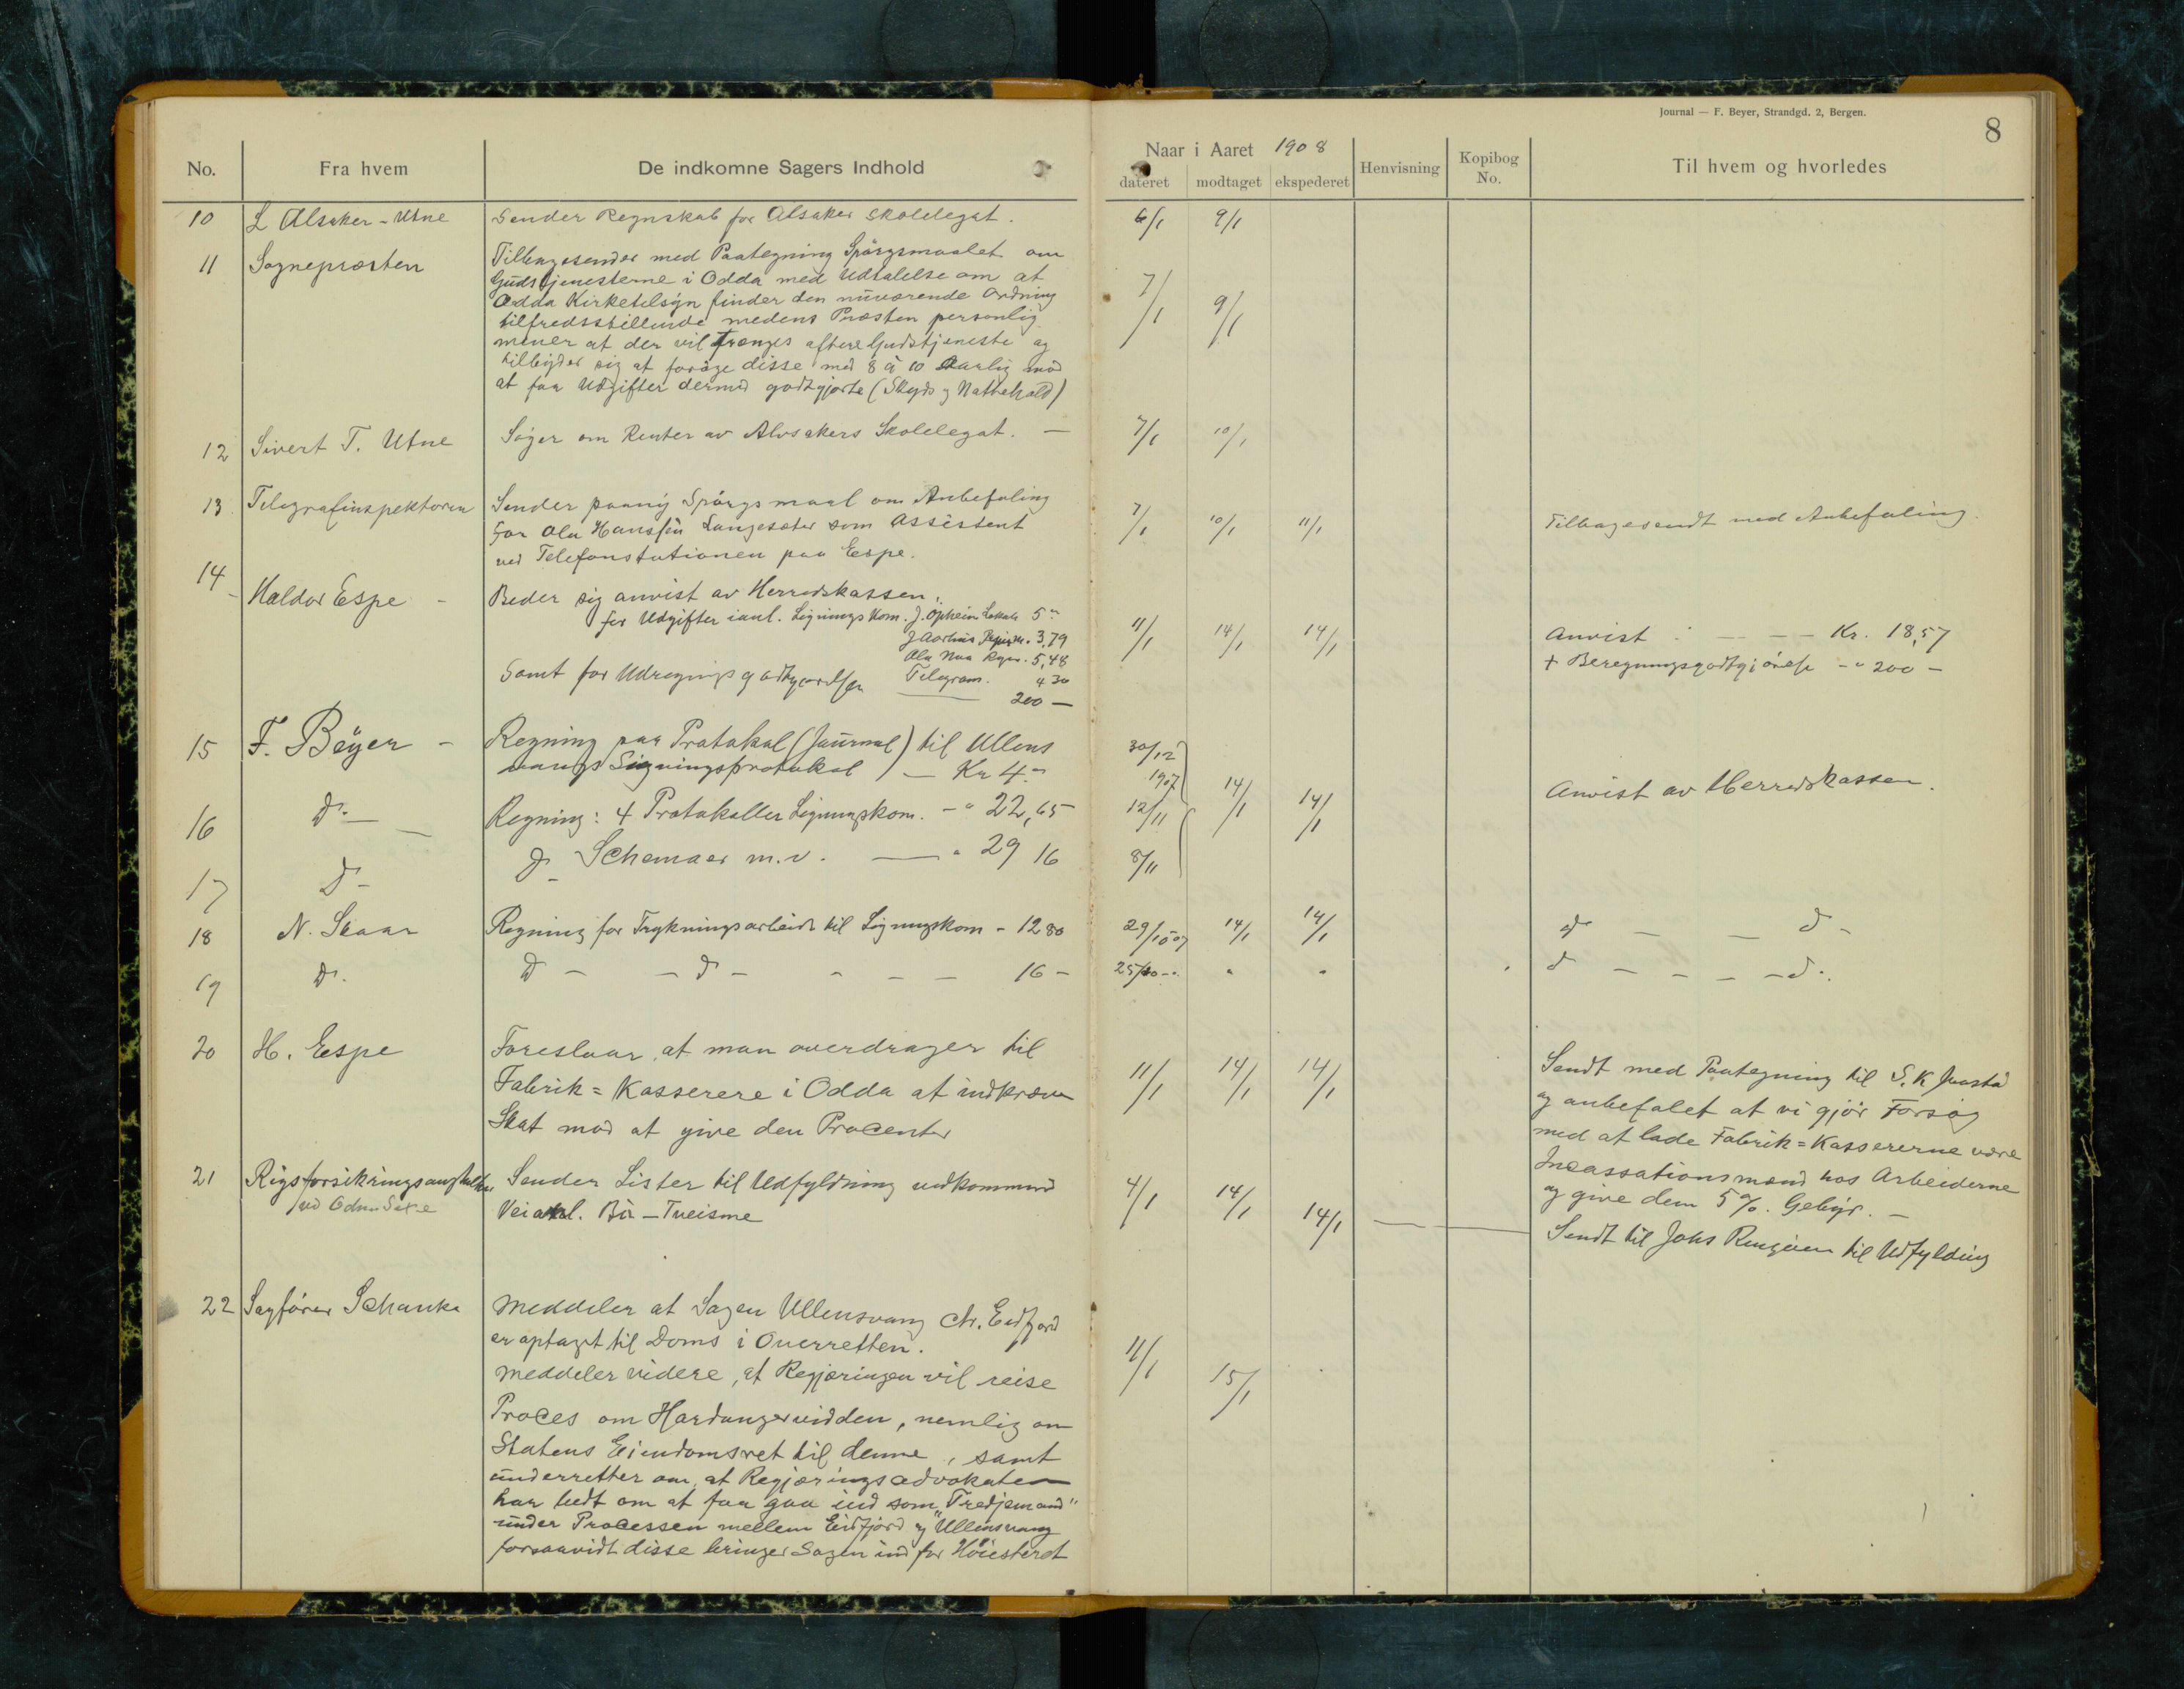 Journal — F. Beyer, Strandgd. 2, Bergen.
8
No. Fra hvem De indkomne Sagers Indhold Naar i Aaret 1908 Henvisning Kopibog No. Til hvem og hvorledes
dateret modtaget ekspederet
10 L Alsaker - Utne Sender Regnskab for Alsaker Skolelegat. 6/1 9/1
11 Sognepræsten Tilbagesender med Paategning Spörgsmaalet om 7/1 9/1
Gudstjenesterne i Odda med Udtalelse om at
Odda Kirketilsyn finder den nuværende Ordning
tilfredsstillende medens Præsten personlig
mener at der vil trænges oftere Gudstjeneste og
tilbyder sig at foröge disse med 8 à 10 Aarlig mod
at faa Udgifter dermed godtgjorte (Skyds og Nattehold)
12 Sivert T. Utne Söger om Renter av Alvsakers Skolelegat. — 7/1 10/1
13 Telegrafinspektoren Sender paany Spörgsmaal om Anbefaling 7/1 10/1 11/1 Tilbagesendt med Anbefaling.
for Ola Hanssen Langesæter som Assistent
ved Telefonstationen paa Espe.
14 - Haldor Espe - Beder sig anvist av Herredskassen.
for Udgifter ianl. Lignings Kom. J. Opheim Lokale 5 " 11/1 14/1 14/1 Anvist — — — Kr. 18,57
J Aarhus 3,79
Ola Naa 5,48 + Beregningsgodtgjörelse - " 200 -
Samt for Udregningsgodtgjörelsen Telegram. 4 30
200 —
15 F. Beyer - Regning paa Protokol (Journal) til Ullens 30/12 1907
vangs Ligningsprotokol — Kr 4 " 14/1 14/1 Anvist av Herredskassen.
16 Do — Regning: 4 Protokoller Ligningskom. - " 22,65 12/11
17 Do - Do Schemaer m.v. — " 29 16 8/11
18 N. Skaar Regning for Trykningsarbeide til Ligningskom - 12 80 29/10 07 14/1 14/1 do — — do -
19 Do. Do - - Do - - - - 16 - 25/10 - " " " do - - - - do.
20 H. Espe Foreslaar, at man overdrager til 11/1 14/1 14/1
Fabrik = Kasserere i Odda at indkræve
Skat mod at give den Procenter
Sendt med Paategning til S. K
og anbefalet at vi gjör Forsög
med at lade Fabrik = Kassererne være
Incassationsmænd hos Arbeiderne
og give dem 5 %. Gebyr. —
21 Rigsforsikringsanstalten Sender Lister til Udfyldning vedkommend 4/1 14/1 14/1 — —
ved Odm Saxe Veianl. Bu - Tveisme
Sendt til Johs Ringöen til Udfylding
22 Sagförer Schanke Meddeler at Sagen Ullensvang ctr. Eidfjord 11/1 15/1
er optaget til Doms i Overretten.
Meddeler videre, at Regjæringen vil reise
Proces om Hardangervidden, nemlig om
Statens Eiendomsret til denne, samt
underretter om, at Regjæringsadvokaten
har bedt om at faa gaa ind som "Tredjemand"
under Processen mellem Eidfjord og Ullensvang
forsaavidt disse bringer Sagen ind for Höiesteret